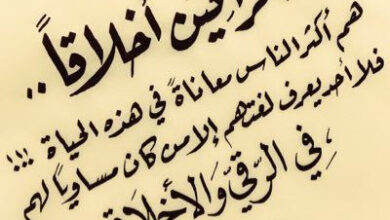 راقين أخلاقاً ..
هم أكثر الناس معاناةً في هذه الحياة !!!
فلا أحد يعرف لغتهم إلا من كان مساوياً لهم
في الرّقيّ وَالأخلاق